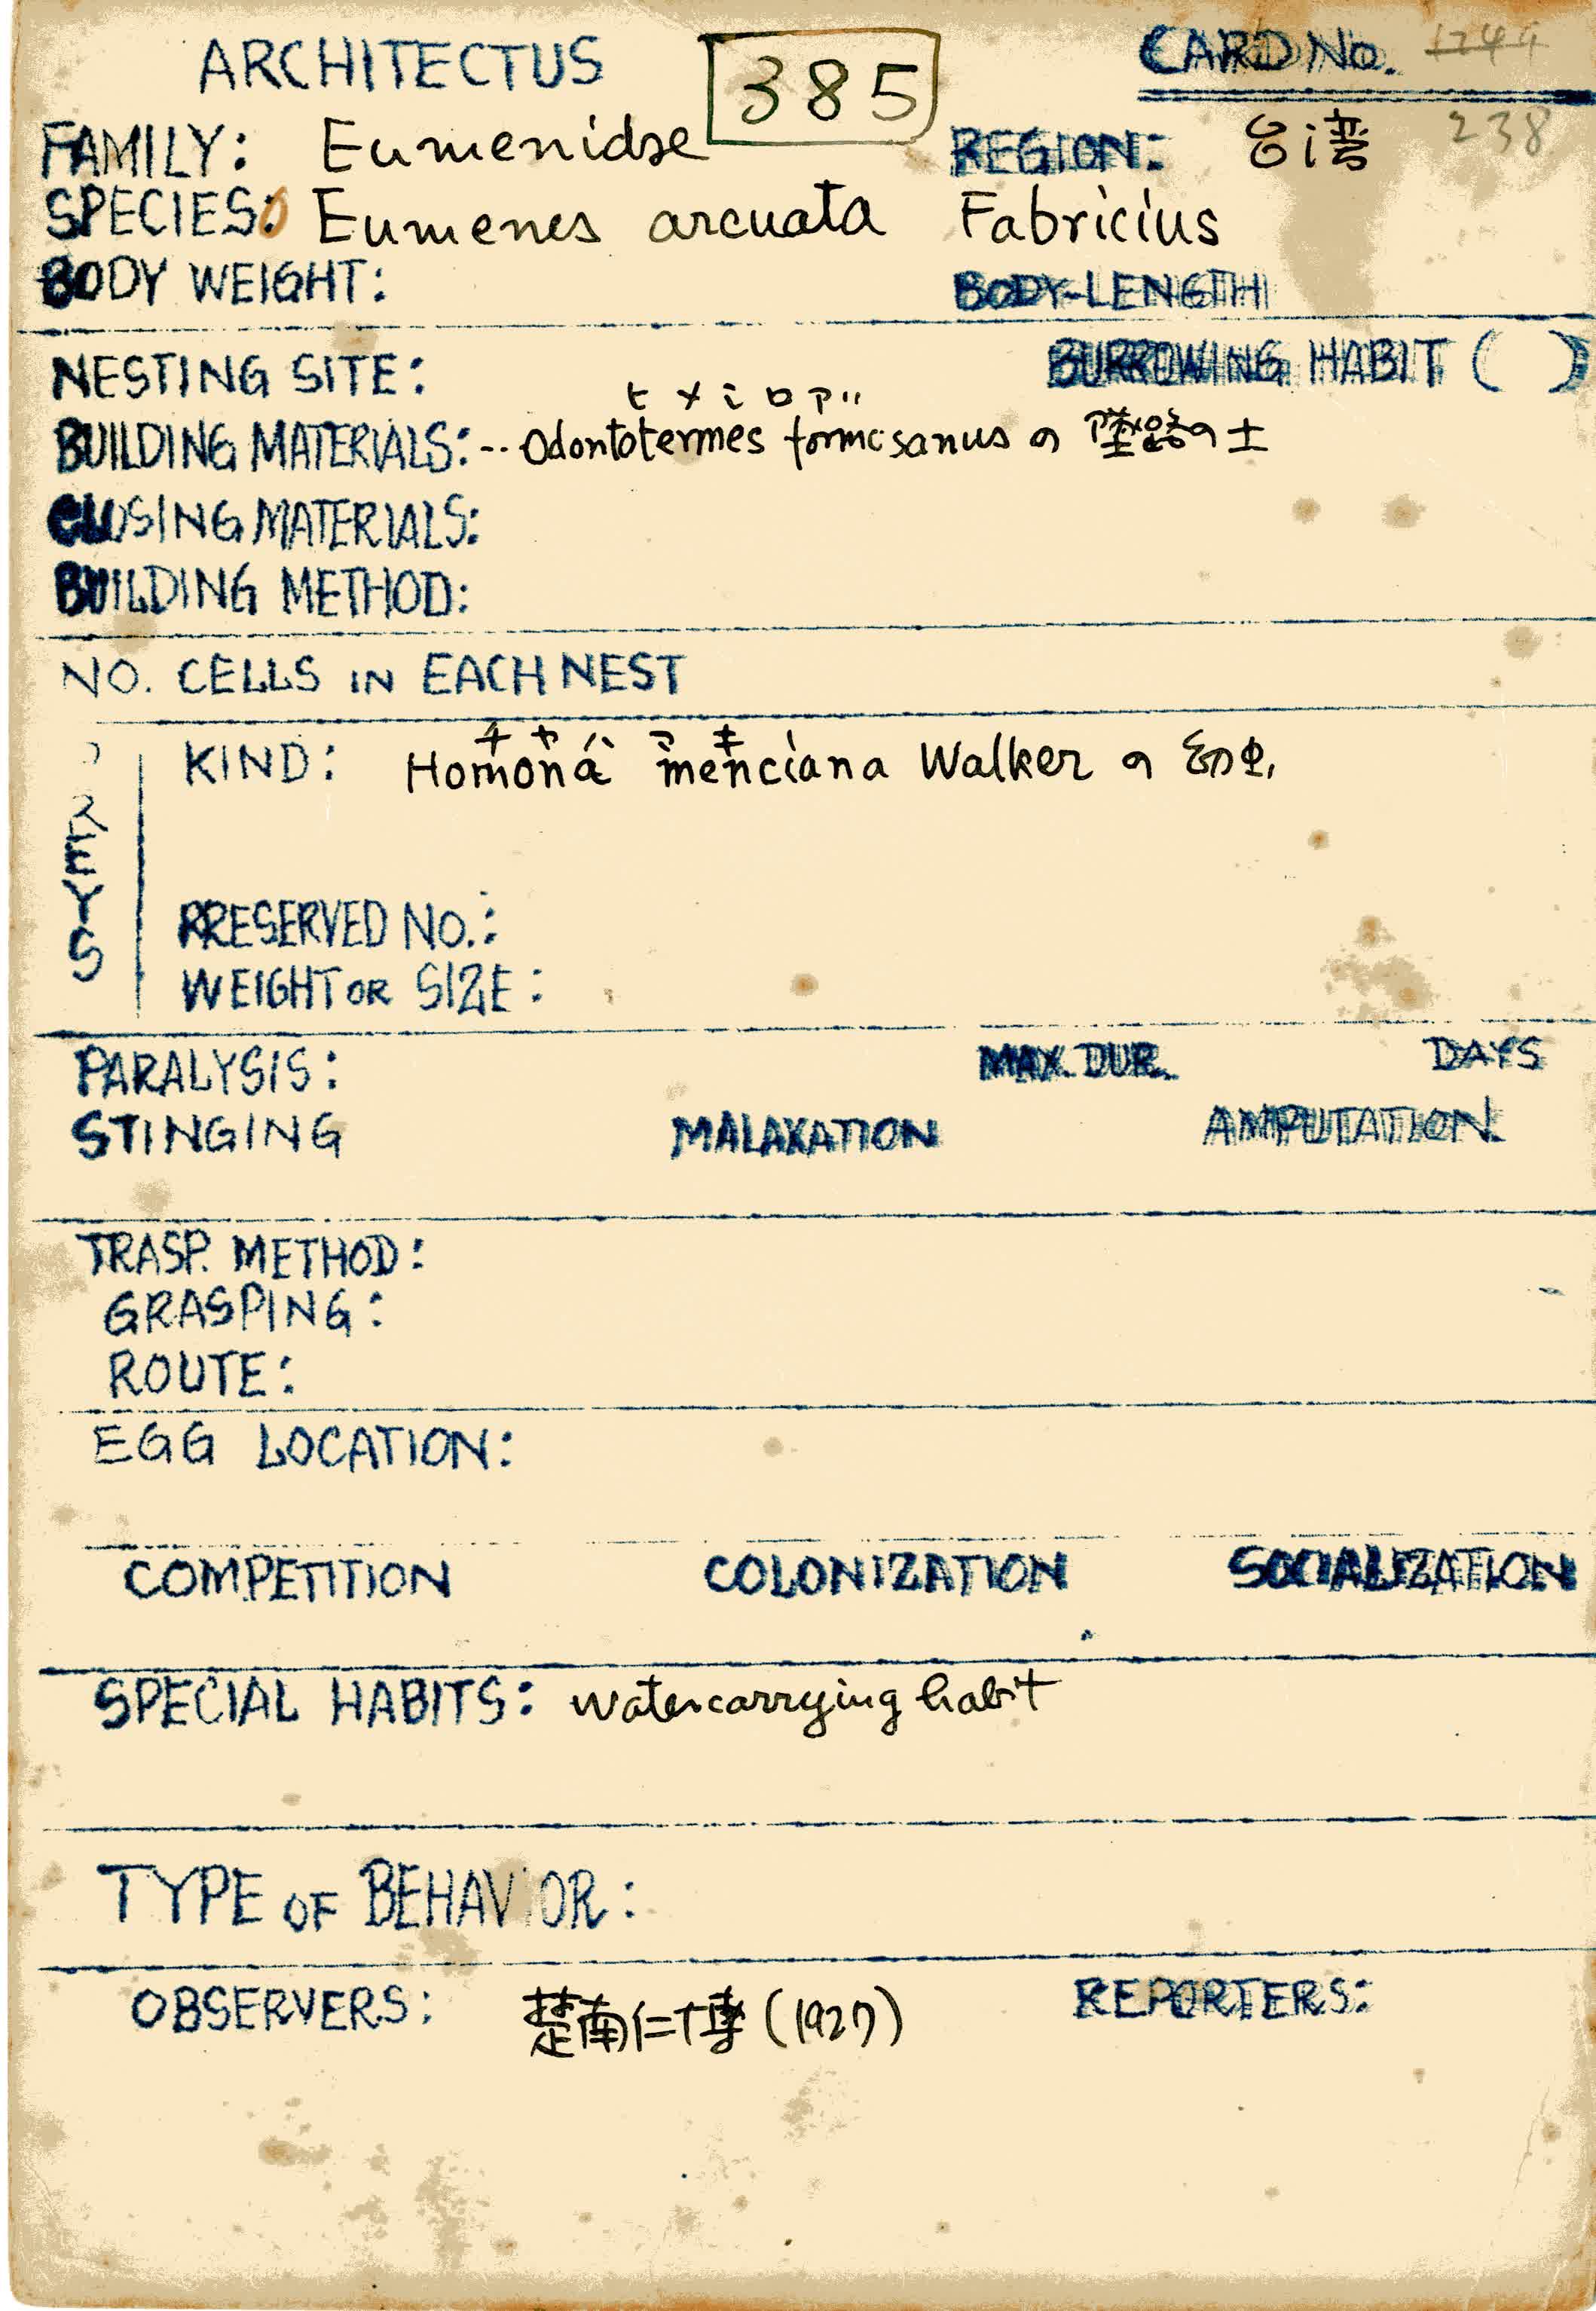 ARCHITECTUS 385 CARD No. 1244
FAMILY: Eumenidae REGION: 台湾 238
SPECIES: Eumenes arcuata Fabricius
BODY WEIGHT: BODY-LENGTH
NESTING SITE: BURROWING HABIT ( )
ヒメシロアリ
BUILDING MATERIALS: -- Odontotermes formosanus の 蟻路の土
CLOSING MATERIALS:
BUILDING METHOD:
NO. CELLS IN EACH NEST
チャハマキ
PREYS
KIND: Homona menciana Walker の 幼虫
PRESERVED NO.:
WEIGHT OR SIZE:
PARALYSIS: MAX. DUR. DAYS
STINGING MALAXATION AMPUTATION
TRASP. METHOD:
GRASPING:
ROUTE:
EGG LOCATION:
COMPETITION COLONIZATION SOCIALIZATION
SPECIAL HABITS: Water carrying habit
TYPE OF BEHAVIOR:
OBSERVERS: 楚南仁博 (1927) REPORTERS: